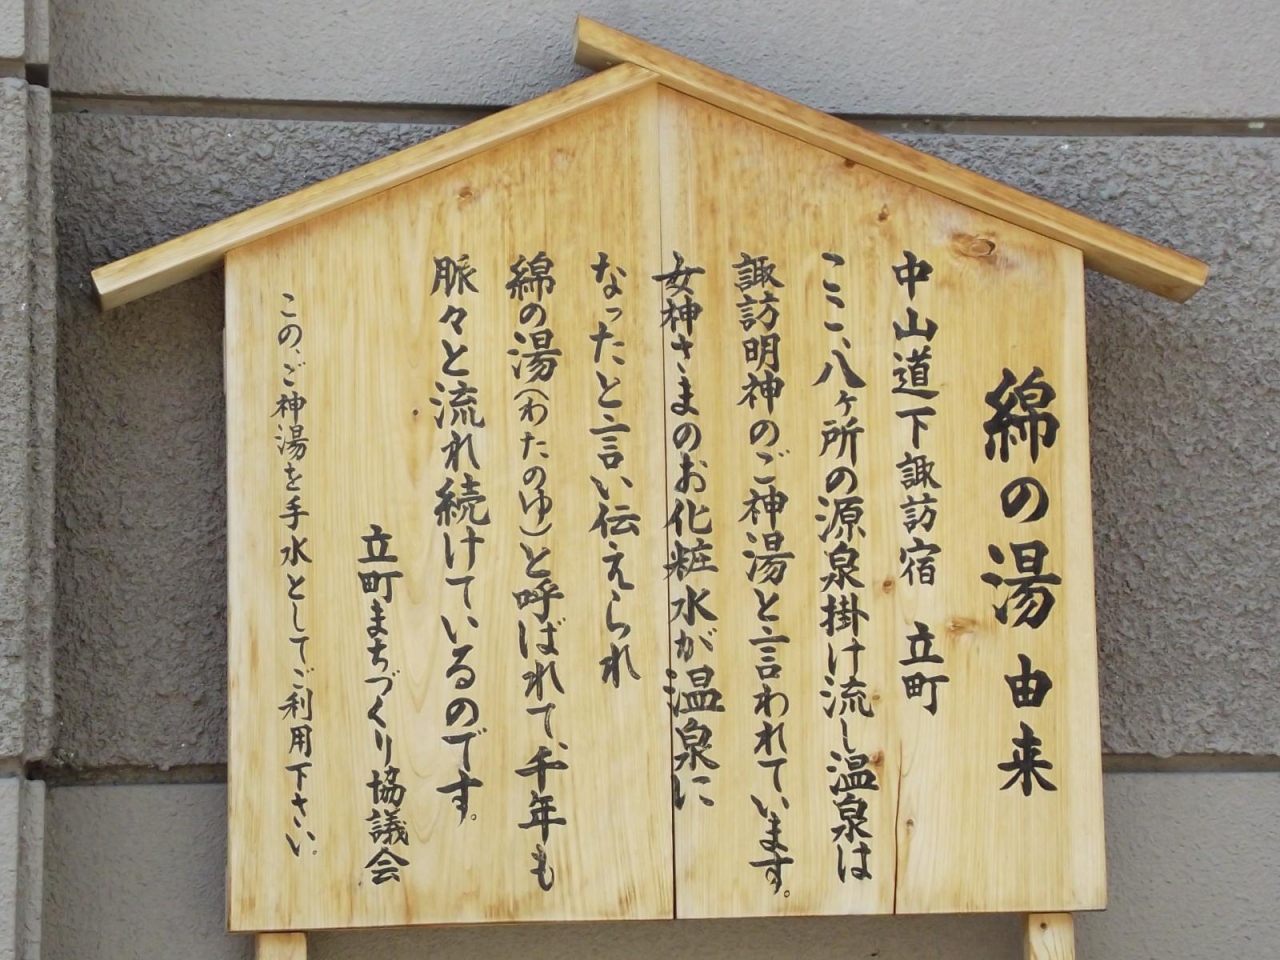 綿の湯 由来
中山道下諏訪宿 立町
ここ、八ヶ所の源泉掛け流し温泉は
諏訪明神のご神湯と言われています。
女神さまのお化粧水が温泉に
なったと言い伝えられ
綿の湯(わたのゆ)と呼ばれて、千年も
脈々と流れ続けているのです。
立町まちづくり協議会
この、ご神湯を手水としてご利用下さい。